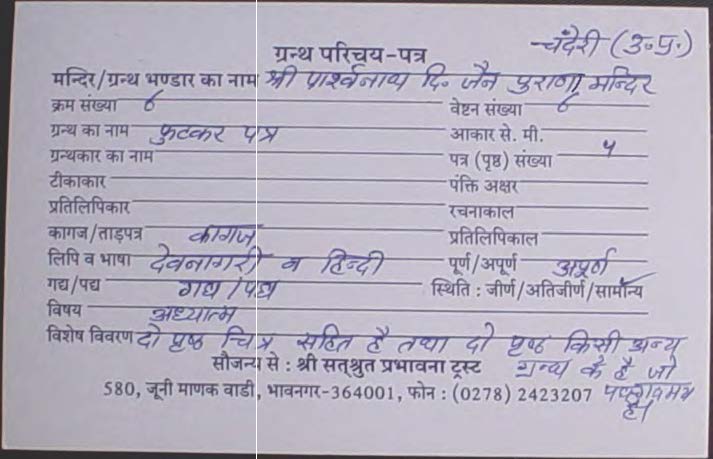 चंदेरी (उ.प्र.)
ग्रन्थ परिचय-पत्र
मन्दिर/ग्रन्थ भण्डार का नाम श्री पार्श्वनाथ दि. जैन पुराणा मन्दिर
क्रम संख्या 6 वेष्टन संख्या 6
ग्रन्थ का नाम फुटकर पत्र आकार से. मी.
ग्रन्थकार का नाम पत्र (पृष्ठ) संख्या 4
टीकाकार पंक्ति अक्षर
प्रतिलिपिकार रचनाकाल
कागज/ताड़पत्र कागज प्रतिलिपिकाल
लिपि व भाषा देवनागरी व हिन्दी पूर्ण/अपूर्ण अपूर्ण
गद्य/पद्य गद्य/पद्य स्थिति : जीर्ण/अतिजीर्ण/सामान्य
विषय अध्यात्म
विशेष विवरण दो पृष्ठ चित्र सहित है तथा दो पृष्ठ किसी अन्य
सौजन्य से : श्री सत्श्रुत प्रभावना ट्रस्ट ग्रन्थ के है जो
580, जूनी माणक वाडी, भावनगर-364001, फोन : (0278) 2423207
है।